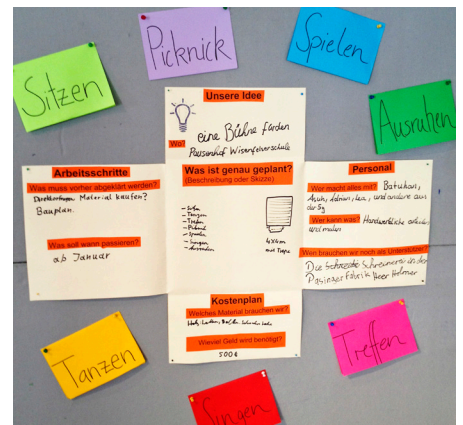 Picknick
Spielen
Sitzen
Ausruhen
Unsere Idee
Wo?
eine Bühne für den
Pausenhof
Arbeitsschritte
Was muss vorher abgeklärt werden?
Material kaufen?
Bauplan.
Was soll wann passieren?
ab Januar
Was ist genau geplant?
(Beschreibung oder Skizze)
- Sitzen
- Tanzen
- Treffen
- Picknick
- Spielen
- Singen
- Ausruhen
4x4m
mit Treppe
Personal
Wer macht alles mit? Batuhan,
und andere aus
der 5g
Wer kann was? Handwerkliche arbeiten
und malen
Wen brauchen wir noch als Unterstützer?
Die Schreinerei in der
Pasinger Fabrik Herr Helmer
Kostenplan
Welches Material brauchen wir?
Holz, Latten,
Wieviel Geld wird benötigt?
500€
Tanzen
Treffen
Singen